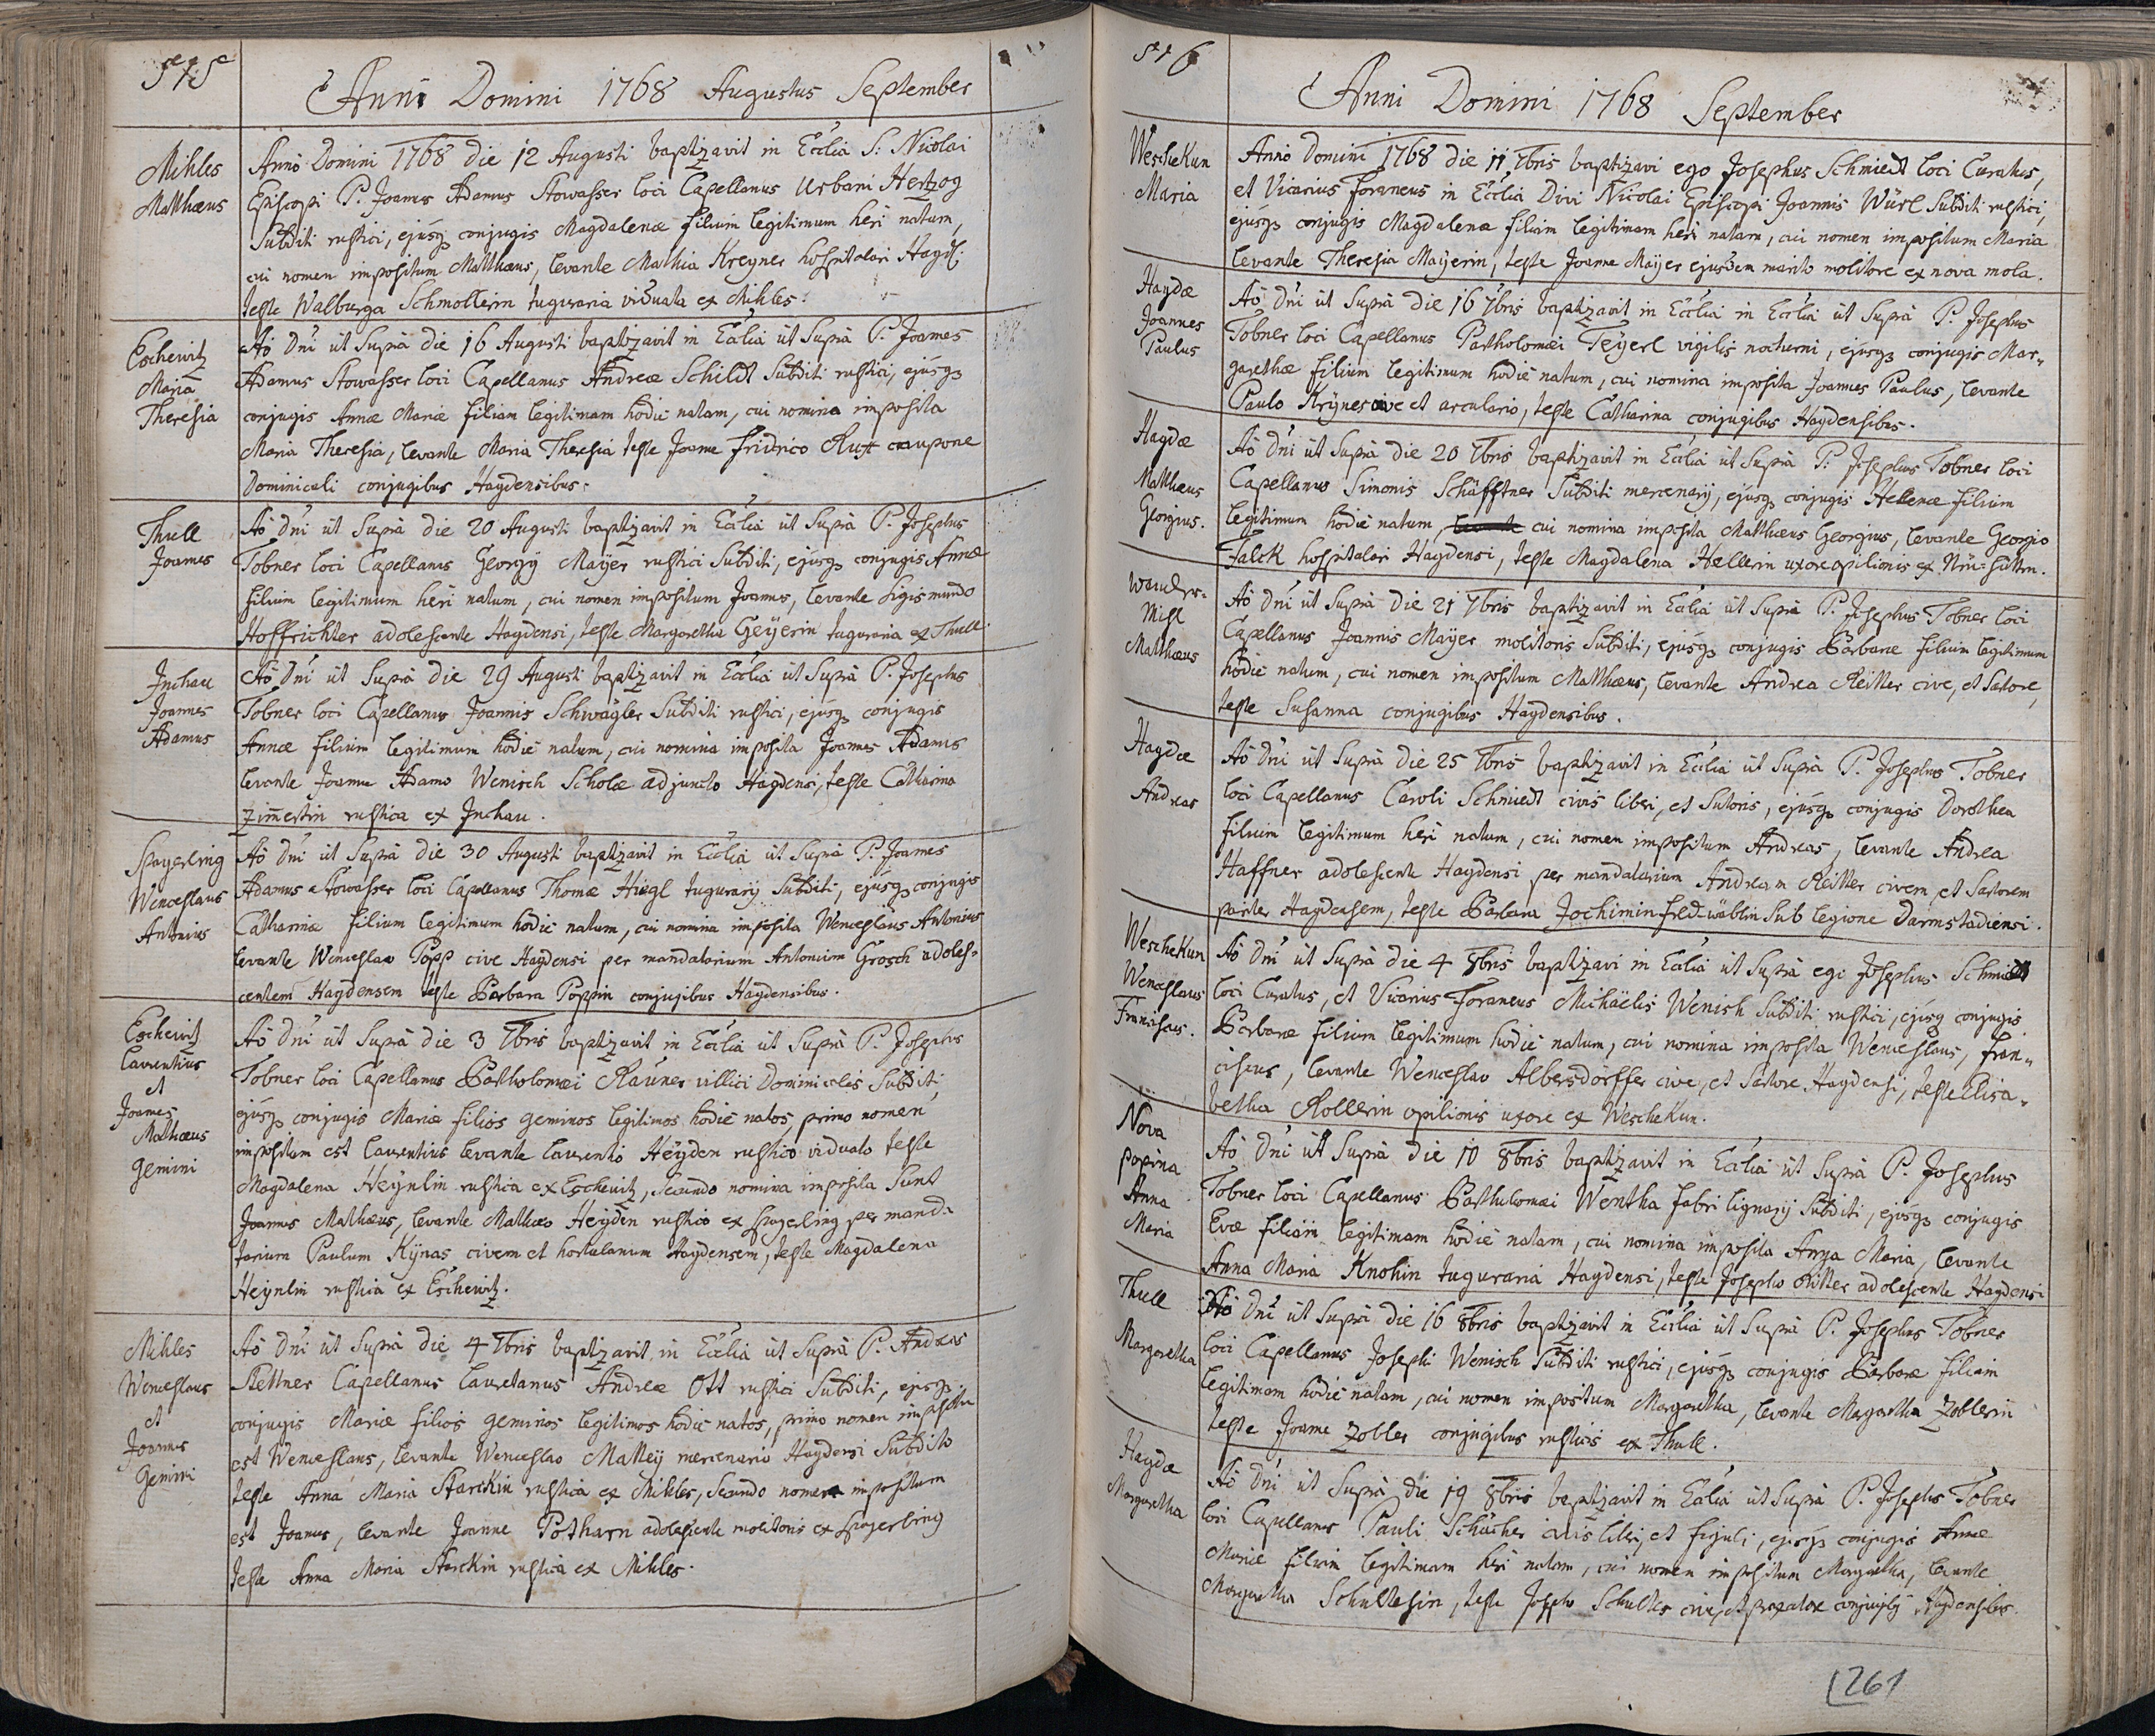 515
Anni Domini 1768 Augustus September
Mihles
Matthæus
Anno Domini 1768 die 12 Augusti baptizavit in Ecclia S: Nicolai
Episcopi P. Joannes Adamus Stowasser loci Capellanus Urbani Hertzog
Subditi rustici, ejusq3 conjugis Magdalenæ filium legitimum heri natum,
cui nomen impositum Matthæus, levante Mathia Kreyner hospitalari Haÿd:
teste Walburga Schmollerin tuguraria viduata ex Mihles.
Eschewitz
Maria
Theresia
Aõ Dni ut Supra die 16 Augusti baptizavit in Ecclia ut Supra P. Joannes
Adamus Stowasser loci Capellanus Andreæ Schildt Subditi rustici, ejusq3
conjugis Annæ Mariæ filiam legitimam hodie natam, cui nomina imposita
Maria Theresia, levante Maria Theresia teste Joanne Fridrico Rust caupone
Dominicali conjugibus Haydensibus.
Thull
Joannes
Aõ Dni ut Supra die 20 Augusti baptizavit in Ecclia ut Supra P. Josephus
Tobner loci Capellanus Georgÿ Maÿer rustici Subditi, ejusq3 conjugis Annæ
filium legitimum heri natum, cui nomen impositum Joannes, levante Sigismundo
Hoffrichter adolescente Haydensi, teste Margaretha Geÿerin tuguraria ex Thull.
Inchau
Joannes
Adamus
Aõ Dni ut Supra die 29 Augusti baptizavit in Ecclia ut Supra P. Josephus
Tobner loci Capellanus Joannis Schwägler Subditi rustici, ejusq3 conjugis
Annæ filium legitimum hodie natum, cui nomina imposita Joannes Adamus
levante Joanne Adamo Wenisch Scholæ adjuncto Haydensi, teste Catharina
Zimestin rustica ex Inchau.
Spayerling
Wenceslaus
Antonius
Aõ Dni ut Supra die 30 Augusti baptizavit in Ecclia ut Supra P. Joannes
Adamus Stowasser loci Capellanus Thomæ Hiegl tugurarÿ Subditi, ejusq3 conjugis
Catharinæ filium legitimum hodie natum, cui nomina imposita Wenceslaus Antonius
levante Wenceslao Popp cive Haydensi per mandatarium Antonium Grosch adoles-
centem Haydensem teste Barbara Poppin conjugibus Haydensibus.
Eschewitz
Laurentius
et
Joannes
Mathæus
gemini
Aõ Dni ut Supra die 3 7bris baptizavit in Ecclia ut Supra P. Josephus
Tobner loci Capellanus Bartholomæi Rauner villici Dominicalis Subditi
ejusq3 conjugis Mariæ filios geminos legitimos hodie natos, primo nomen
impositum est Laurentius levante Laurentio Heÿden rustico viduato teste
Magdalena Heÿnlin rustica ex Eschewitz, Secundo nomina imposita Sunt
Joannes Mathæus, levante Mathæo Heÿden rustico ex Spayerling per manda-
tarium Paulum Kÿnas civem et hortulanum Haydensem, teste Magdalena
Heÿnlin rustica ex Eschewitz.
Mihles
Wenceslaus
et
Joannes
Gemini
Aõ Dni ut Supra die 4 7bris baptizavit in Ecclia ut Supra P. Andreas
Stettner Capellanus Lauretanus Andreæ Ott rustici Subditi, ejusq3
conjugis Mariæ filios geminos legitimos hodie natos, primo nomen impositum
est Wenceslaus, levante Wenceslao Mattey mercenario Haydensi Subdito
teste Anna Maria Starckin rustica ex Mihles, Secundo nomen impositum
est Joannes, levante Joanne Potharn adolescente molitoris ex Spayerling
teste Anna Maria Starckin rustica ex Mihles.
516
Anni Domini 1768 September
WescheKun
Maria
Anno Domini 1768 die 11 7bris baptizavi ego Josephus Schmiedt loci Curatus,
et Vicarius foraneus in Ecclia Divi Nicolai Episcopi Joannis Würl Subditi rustici,
ejusq3 conjugis Magdalenæ filiam legitimam heri natam, cui nomen impositum Maria
levante Theresia Maÿerin, teste Joanne Maÿer ejusdem marito molitore ex nova mola.
Haydæ
Joannes
Paulus
Aõ Dni ut Supra die 16 7bris baptizavit in Ecclia in Ecclia ut Supra P. Josephus
Tobner loci Capellanus Bartholomæi Teÿerl vigilis nocturni, ejusq3 conjugis Mar-
garethæ filium legitimum hodie natum, cui nomina imposita Joannes Paulus, levante
Paulo Krÿnes cive et arculario, teste Catharina conjugibus Haydensibus.
Haydæ
Matthæus
Georgius.
Aõ Dni ut Supra die 20 7bris baptizavit in Ecclia ut Supra P: Josephus Tobner loci
Capellanus Simonis Schäfftner Subditi mercenarÿ, ejusq3 conjugis Hellenæ filium
legitimum hodie natum, cui nomina imposita Matthæus Georgius, levante Georgio
Falck hospitalari Haydensi, teste Magdalena Hellerin uxore opilionis ex
Matthæus
Aõ Dni ut Supra die 21 7bris baptizavit in Ecclia ut Supra P. Josephus Tobner loci
Capellanus Joannis Maÿer molitoris Subditi, ejusq3 conjugis Barbaræ filium legitimum
hodie natum, cui nomen impositum Matthæus, levante Andrea Reitter cive, et Satore,
teste Susanna conjugibus Haydensibus.
Haydæ
Andreas
Aõ Dni ut Supra die 25 7bris baptizavit in Ecclia ut Supra P. Josephus Tobner
loci Capellanus Caroli Schmiedt civis liberi, et Sutoris, ejusq3 conjugis Dorothea
filium legitimum heri natum, cui nomen impositum Andreas, levante Andrea
Haffner adolescente Haydensi per mandatarium Andream Reitter civem et Sartorem
pariter Haydensem, teste Barbara Jochimin Sub legione Darmstadiensi.
WescheKun
Wenceslaus
Franciscus.
Aõ Dni ut Supra die 4 8bris baptizavi in Ecclia ut Supra ego Josephus Schmiedt
loci Curatus, et Vicarius Foraneus Michäelis Wenish Subditi rustici, ejusq3 conjugis
Barbaræ filium legitimum hodie natum, cui nomina imposita Wenceslaus, Fran-
ciscus, levante Wenceslao Albersdörffer cive, et Sartore Haydensi, teste Elisa-
betha Rollerin opilionis uxore ex WescheKun.
Nova
popina
Anna
Maria
Aõ Dni ut Supra die 10 8bris baptizavit in Ecclia ut Supra P. Josephus
Tobner loci Capellanus Bartholomæi Wentha fabri lignarÿ Subditi, ejusq3 conjugis
Evæ filiam legitimam hodie natam, cui nomina imposita Anna Maria, levante
Anna Maria Knohin tuguraria Haydensi, teste Josepho Ritter adolescente Haydensi
Thull
Margaretha
Aõ Dni ut Supra die 16 8bris baptizavit in Ecclia ut Supra P. Josephus Tobner
loci Capellanus Josephi Wenisch Subditi rustici, ejusq3 conjugis Barbaræ filiam
legitimam hodie natam, cui nomen impositum Margaretha, levante Margaretha Zoblerin
teste Joanne Zobler conjugibus rusticis ex Thull.
Haydæ
Margaretha
Aõ Dni ut Supra die 19 8bris baptizavit in Ecclia ut Supra P. Josephus Tobner
loci Capellanus Pauli Schucher civis liberi, et figuli, ejusq3 conjugis Annæ
Mariæ filiam legitimam heri natam, cui nomen impositum Margaretha, levante
Margaretha Schultesin, teste Josepho Schultes cive, et conjugibus Haydensibus.
261